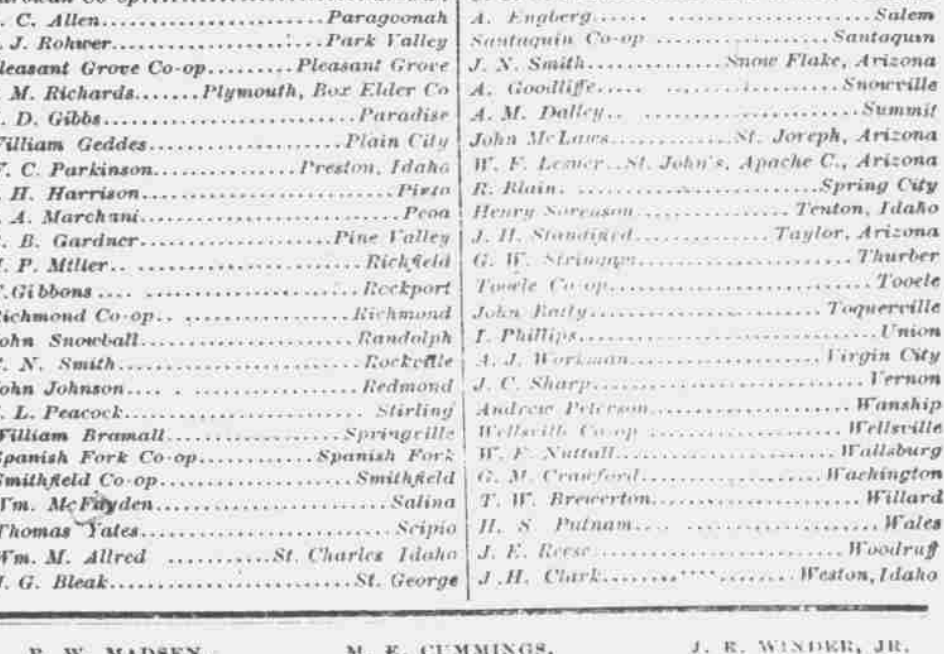 . C. Allen.......................Paragoonah
. J. Rohwer......................Park Valley
leasant Grove Co-op.........Pleasant Grove
. M. Richards.......Plymouth, Box Elder Co
. D. Gibbs..........................Paradise
Villiam Geddes....................Plain City
. C. Parkinson...............Preston, Idaho
. H. Harrison..........................Pinto
. A. Marchani...........................Peoa
. B. Gardner.....................Pine Valley
. P. Miller.. ......................Richfield
.Gibbons .... .....................Rockport
Richmond Co-op.. .................Richmond
John Snowball....................Randolph
. N. Smith........................Rockville
John Johnson.... . ................Redmond
. L. Peacock....................... Stirling
William Bramall.................Springville
Spanish Fork Co-op...........Spanish Fork
Smithfield Co-op.................Smithfield
Wm. McFayden........................Salina
Thomas Yates..........................Scipio
Wm. M. Allred ..........St. Charles Idaho
. G. Bleak.......................St. George
A. Engberg..... .......................Salem
Santaquin Co-op .................Santaquin
J. N. Smith.............Snow Flake, Arizona
A. Goodliffe..... ..................Snowville
A. M. Dalley.. ......................Summit
John McLaws............St. Joreph, Arizona
W. F. Lesuer..St. John's, Apache C., Arizona
R. Blain. .......................Spring City
Henry Sorenson................Tenton, Idaho
J. H. Standifird..............Taylor, Arizona
G. W. Stringam.....................Thurber
Tooele Co-op..........................Tooele
John Batty.......................Toquerville
I. Phillips.............................Union
A. J. Workman...................Virgin City
J. C. Sharp..........................Vernon
Andrew Peterson....................Wanship
Wellsvill Co-op ....................Wellsville
W. F. Nuttall.....................Wallsburg
G. M. Crawford..................Wachington
T. W. Brewerton....................Willard
H. S. Putnam.... ....................Wales
J. E. Reese .......................Woodruff
J.H. Clark....................Weston,Idaho
R. W. MADSEN, M. E. CUMMINGS, J. R. WINDER, JR.